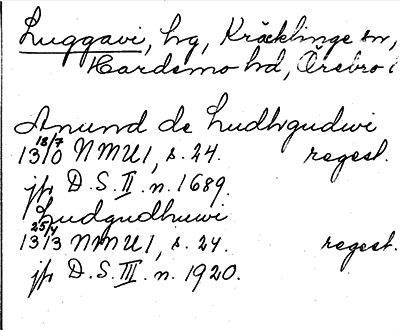 Luggavi, hg, Kräcklinge sn,
Hardemo hd, Örebro l
Anund de Ludhgudwi
18/7
1310 NMU 1, s. 24. regest.
jfr D.S. II n. 1689.
Ludgudhuwi
25/4
1313 NMU 1, s. 24. regest.
jfr D.S. III. n. 1920.